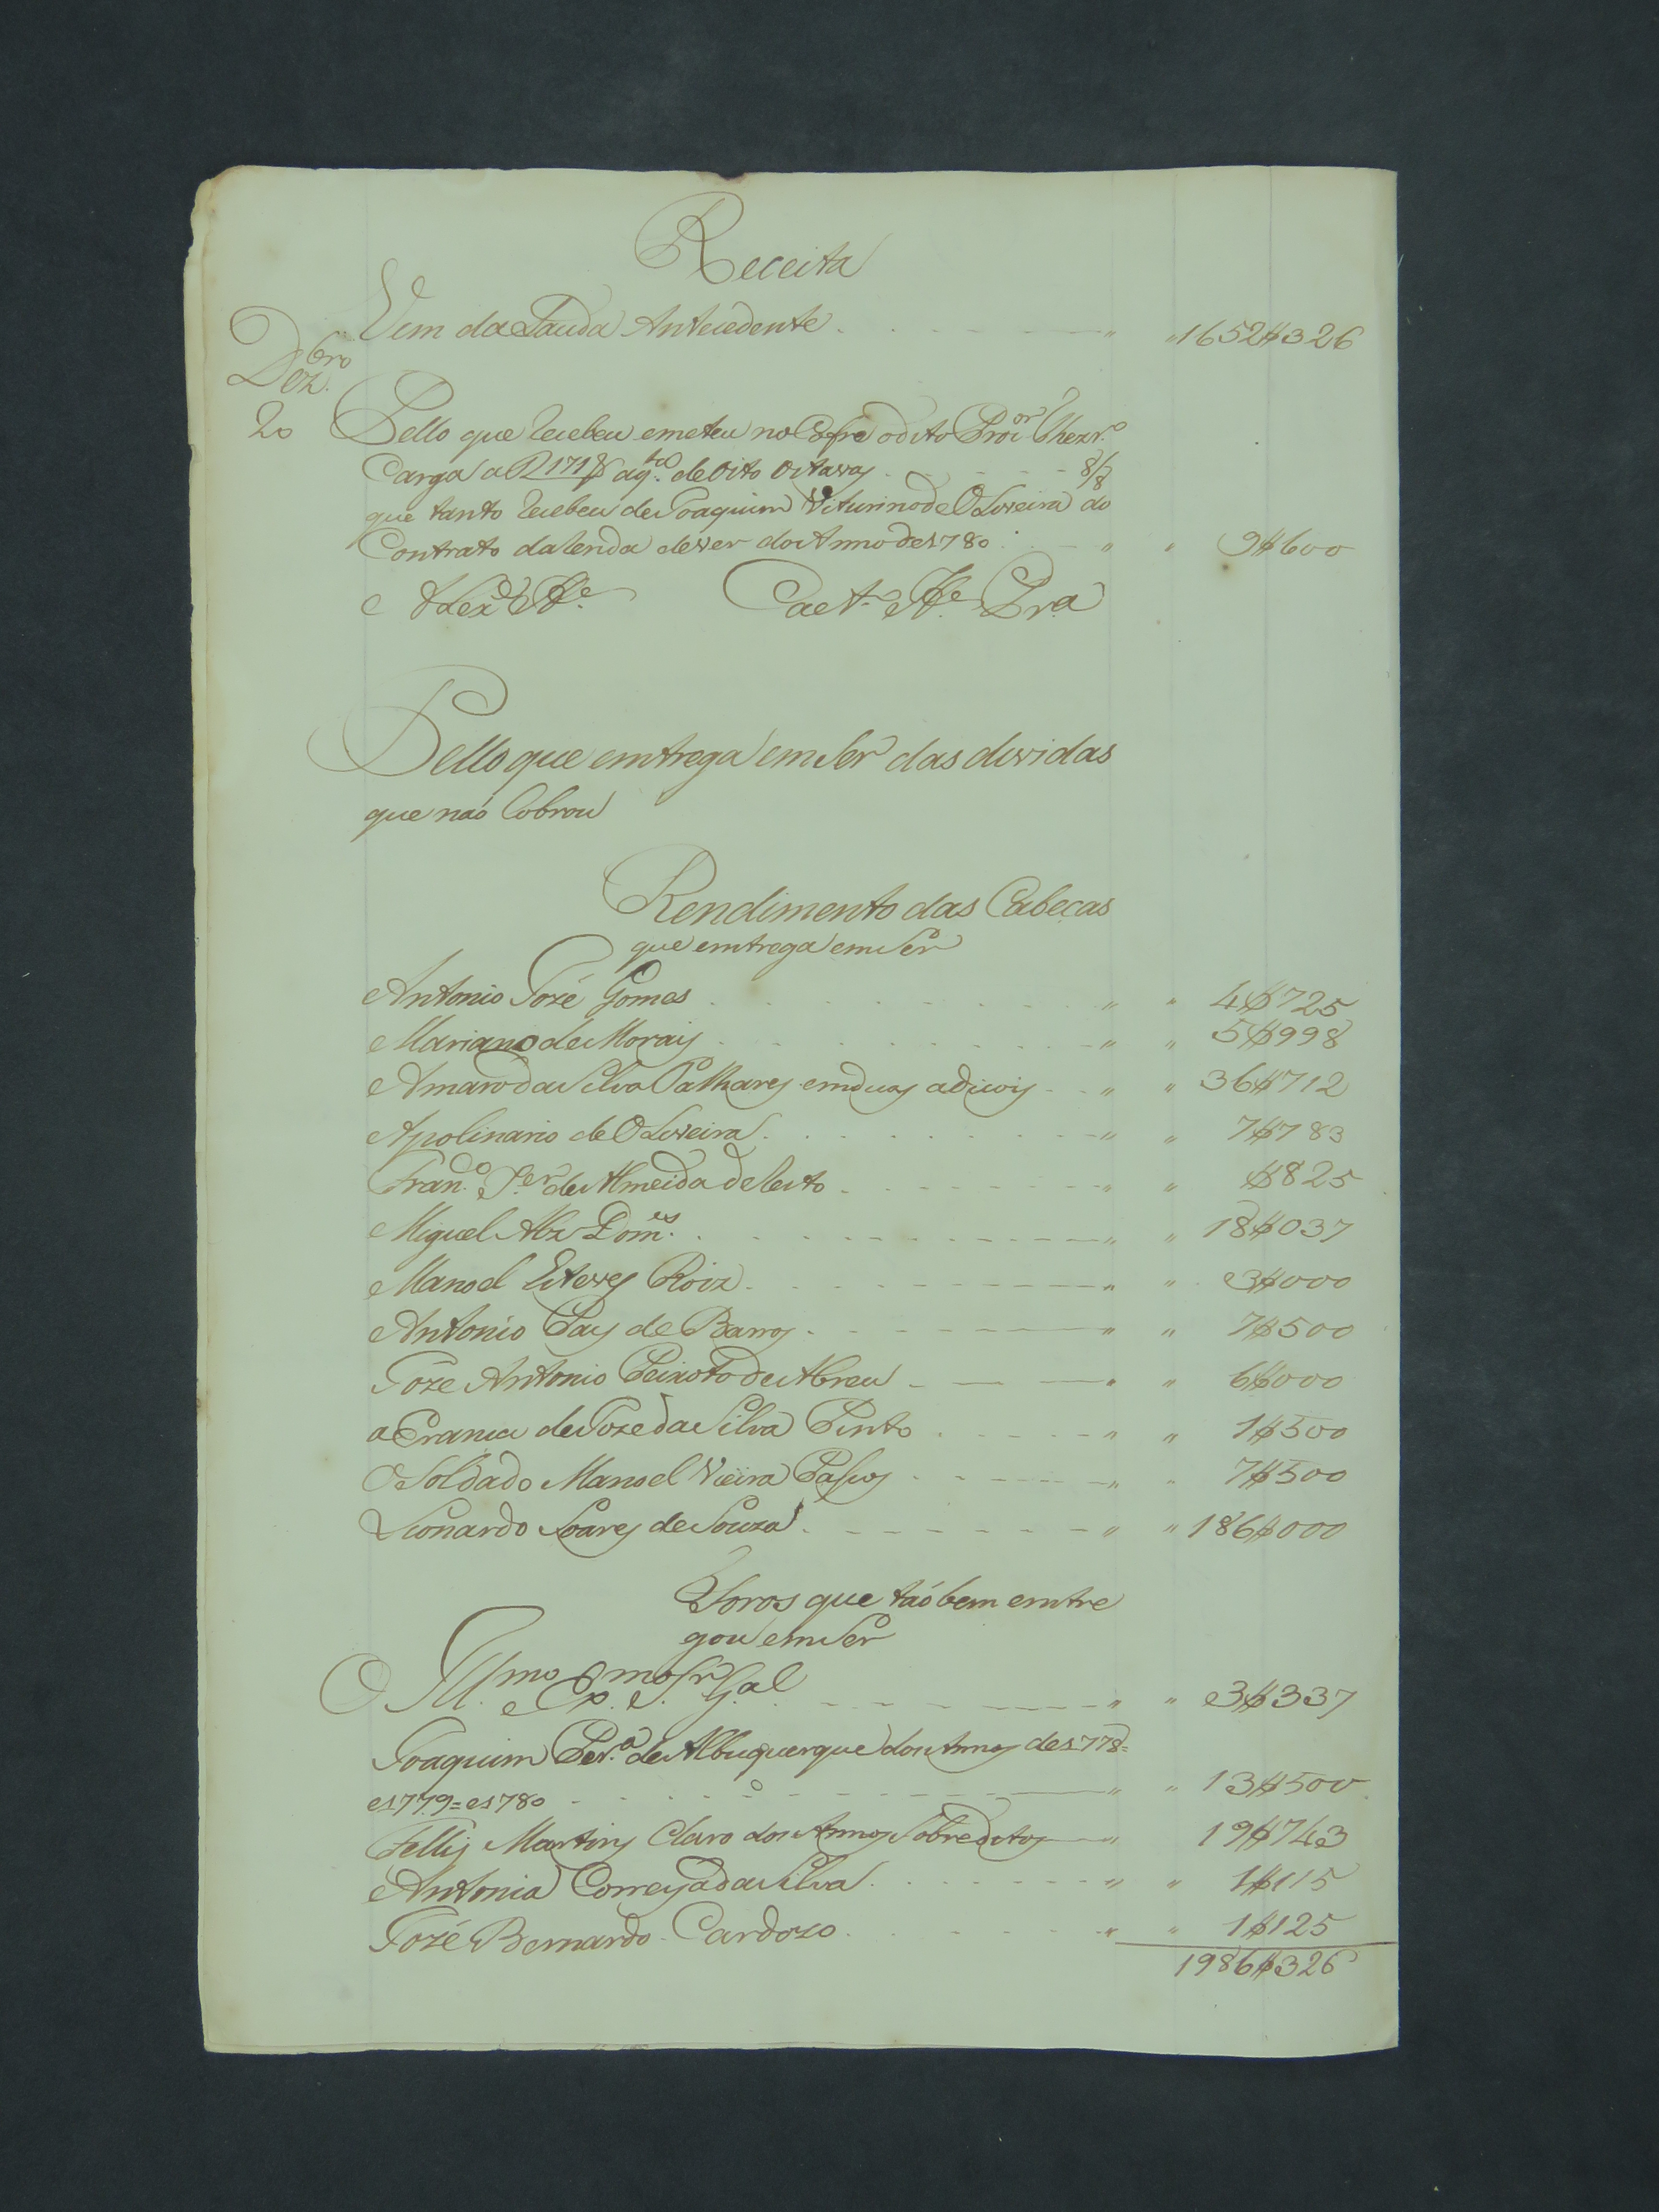 Receita
Vem da Lauda Antecedente 1652$326
Dezbro
20 Pello que recebeu emeteu no Cofre odito Procor Thezro
Carga a R 171$ aqto de Oito Oitavas 8/8
que tanto recebeu de Joaquim Viturino de Oliveira do
Contrato da renda de ver do Anno de 1780 9$600
Caeto Pra
Pello que emtrega em Ser das dividas
que naó Cobrou
Rendimento das Cabecas
que emtrega em Ser
Antonio Jozé Gomes 4$725
Mariano de Morais 5$998
Amaro da Silva Palhares em duas adicois 36$712
Apolinario de Oliveira 7$783
Frano Xer de Almeida de resto $825
Miguel Alz Domes 18$037
Manoel Esteves Roiz 3$000
Antonio Pais de Barros 7$500
Joze Antonio Peixoto de Abreu 6$000
a Eranca de Joze da Silva Pinto 1$500
O Soldado Manoel Vieira Passos 7$500
Lionardo Soares de Souza 186$000
Foros que taóbem emtre
gou em Ser
O Illmo e Exmo Sr Gal 3$337
Joaquim Pera de Albuquerque dos Annos de 1778=
e1779=e1780 13$500
Fellis Martins Claro dos Annos Sobreditos 19$743
Antonia Correya da Silva 1$115
Jozé Bernardo Cardozo 1$125
1986$326